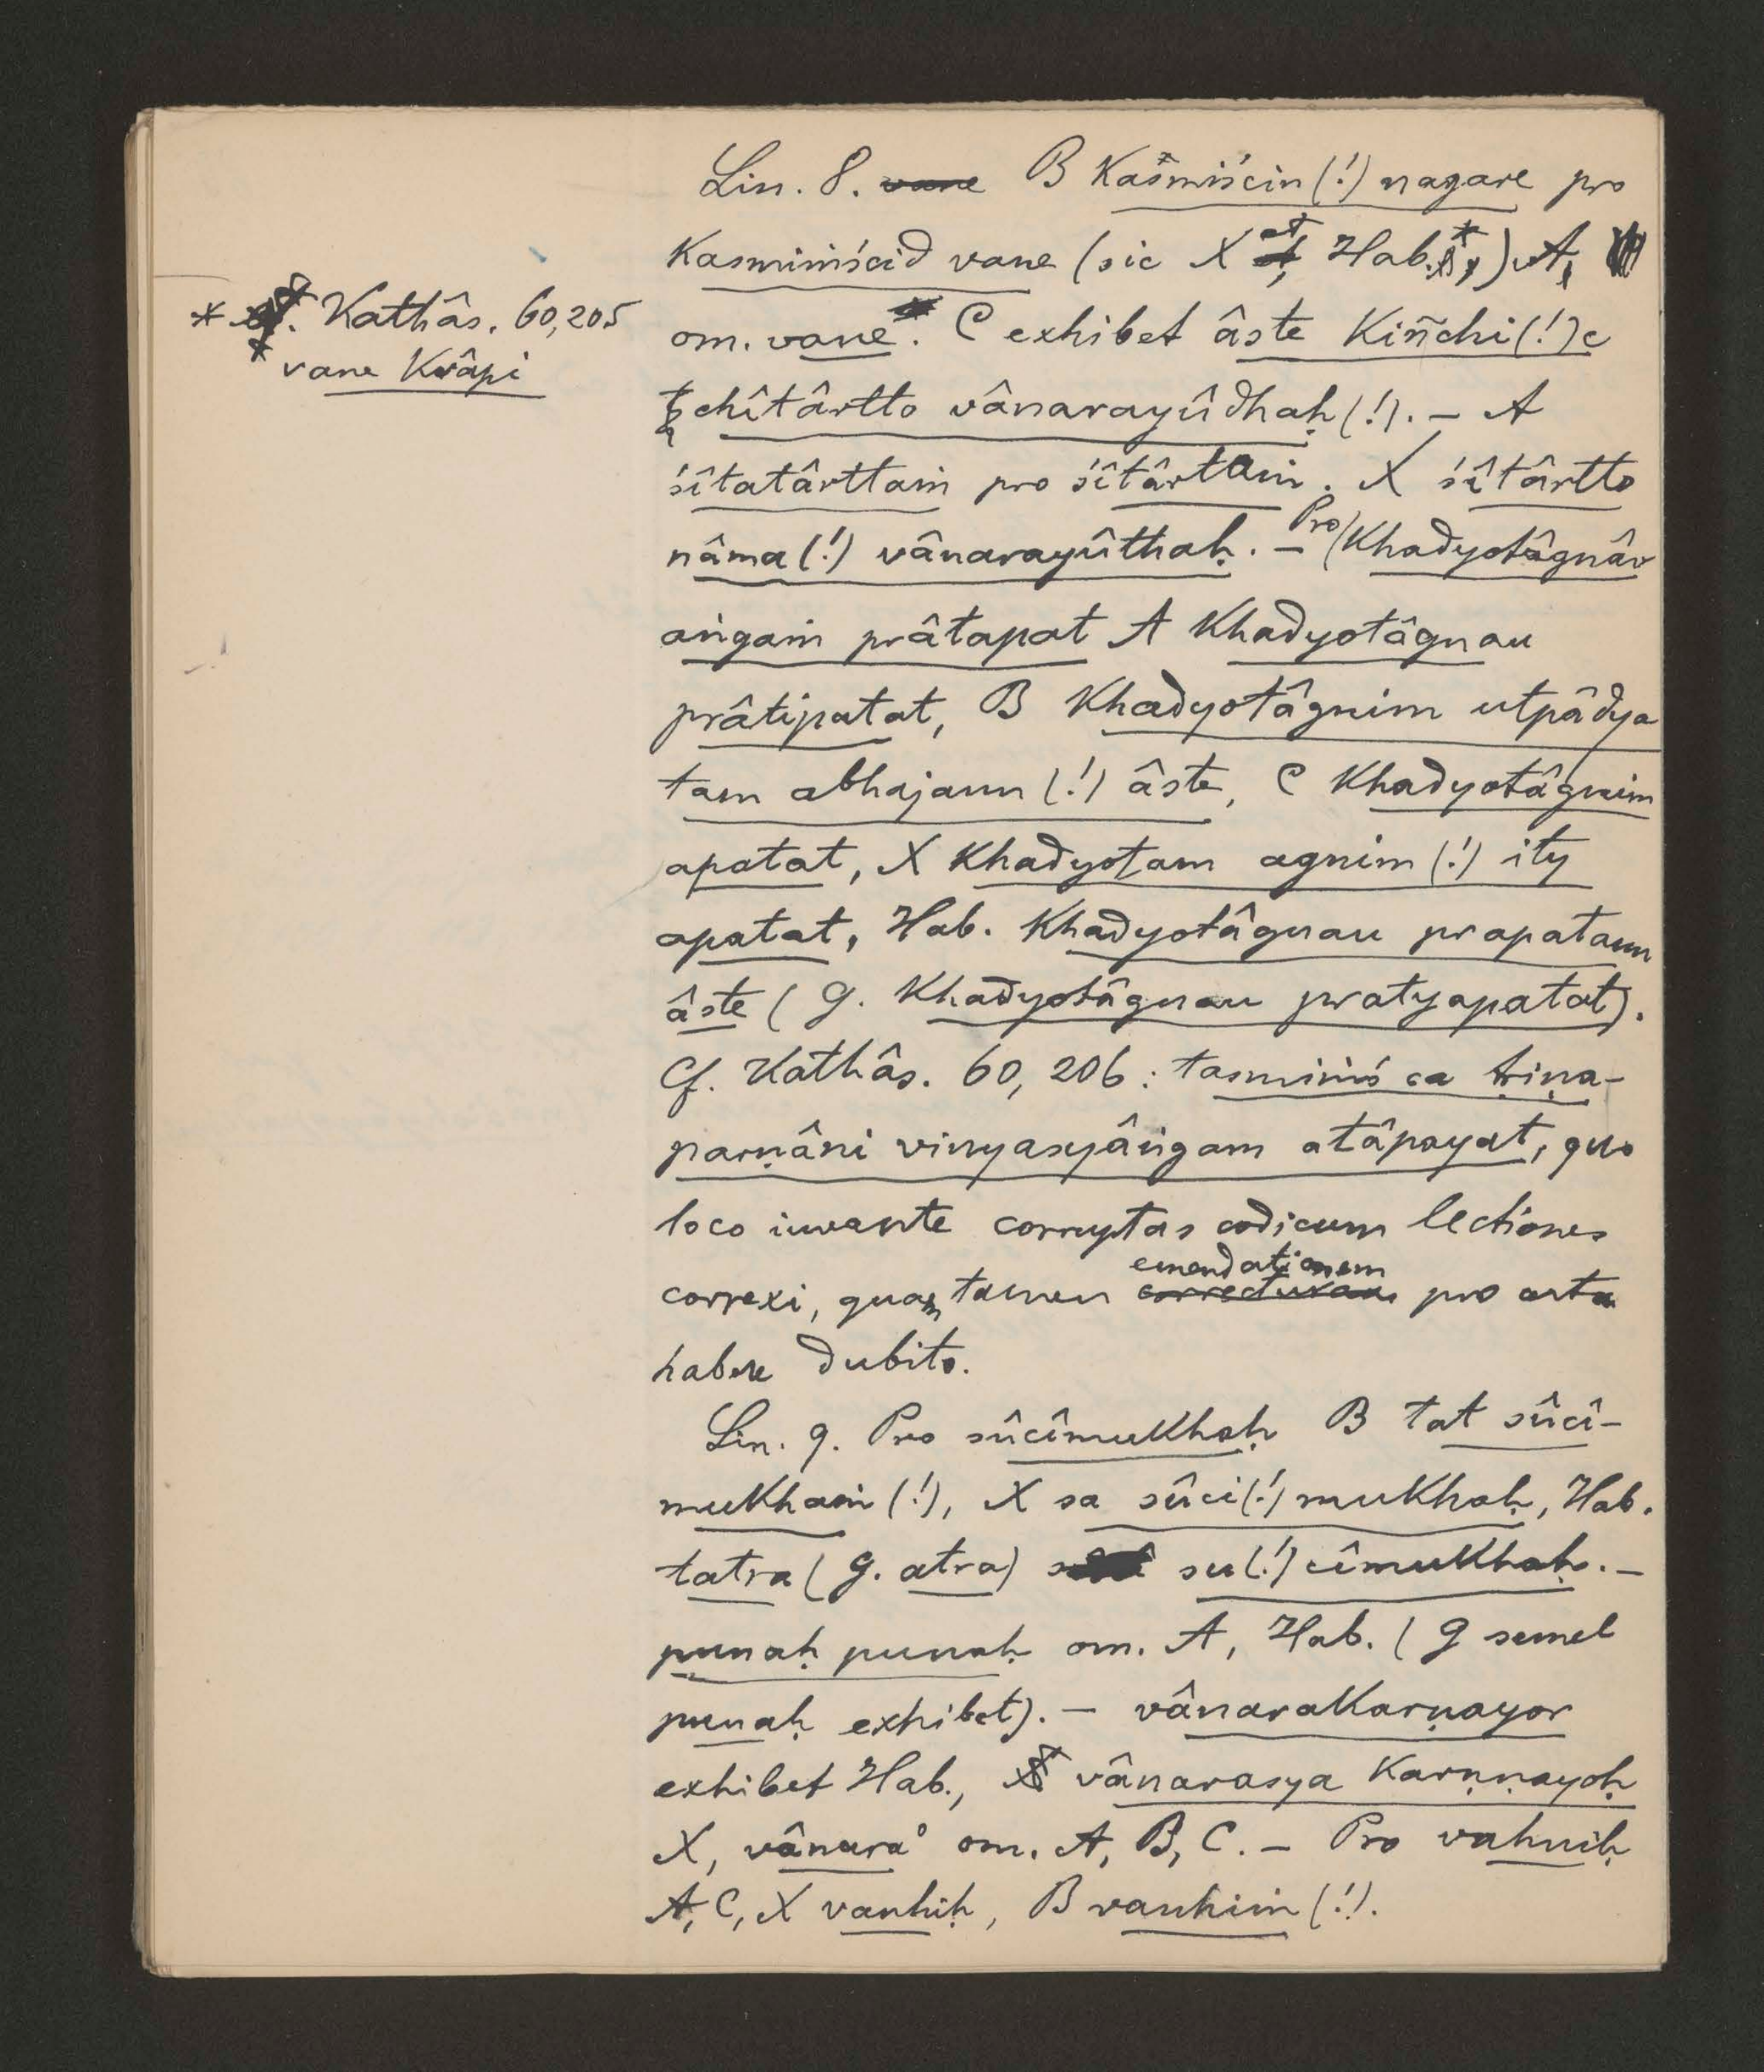 Lin. 8. ~~vane~~ B kaśmiścin(!) nagare pro
kasmiṁścid vane (sic X et Hab.*) A,
om. vane. C exhibet âste kiñchi(!)c
chîtârtto vânarayûdhaḥ(!). – A
śîtatârttaṁ pro śîtârttaṁ. X śîtârtto
nâma(!) vânarayûthaḥ. – Pro khadyotâgnâv
aṅgaṁ prâtapat A khadyotâgnau
prâtipatat, B khadyotâgnim utpâdya
tam abhajann(!) âste, C khadyotâgnim
apatat, X khadyotam agnim(!) ity
apatat, Hab. khadyotâgnau prapatann
âste (g. khadyotâgnau pratyapatat).
Cf. Kathâs. 60, 206: tasmiṁś ca tṛiṇa-
parṇâni vinyasyâṅgam atâpayat, quo
loco iuvante corruptas codicum lectiones
correxi, quam tamen ~~correcturam~~ emendationem pro certa
habere dubito.
Lin. 9. Pro sûcîmukhaḥ B tat sûcî-
mukhaṁ(!), X sa sûci(!)mukhaḥ, Hab.
tatra (g. atra) su(!)cîmukhaḥ. –
punaḥ punaḥ om. A, Hab. (g semel
punaḥ exhibet). – vânarakarṇayor
exhibet Hab., vânarasya karṇṇayoḥ
X, vânara° om. A, B, C. – Pro vahniḥ
A, C, X vanhiḥ, B vanhiṁ(!).
* Cf. Kathâs. 60, 205
vane kvâpi